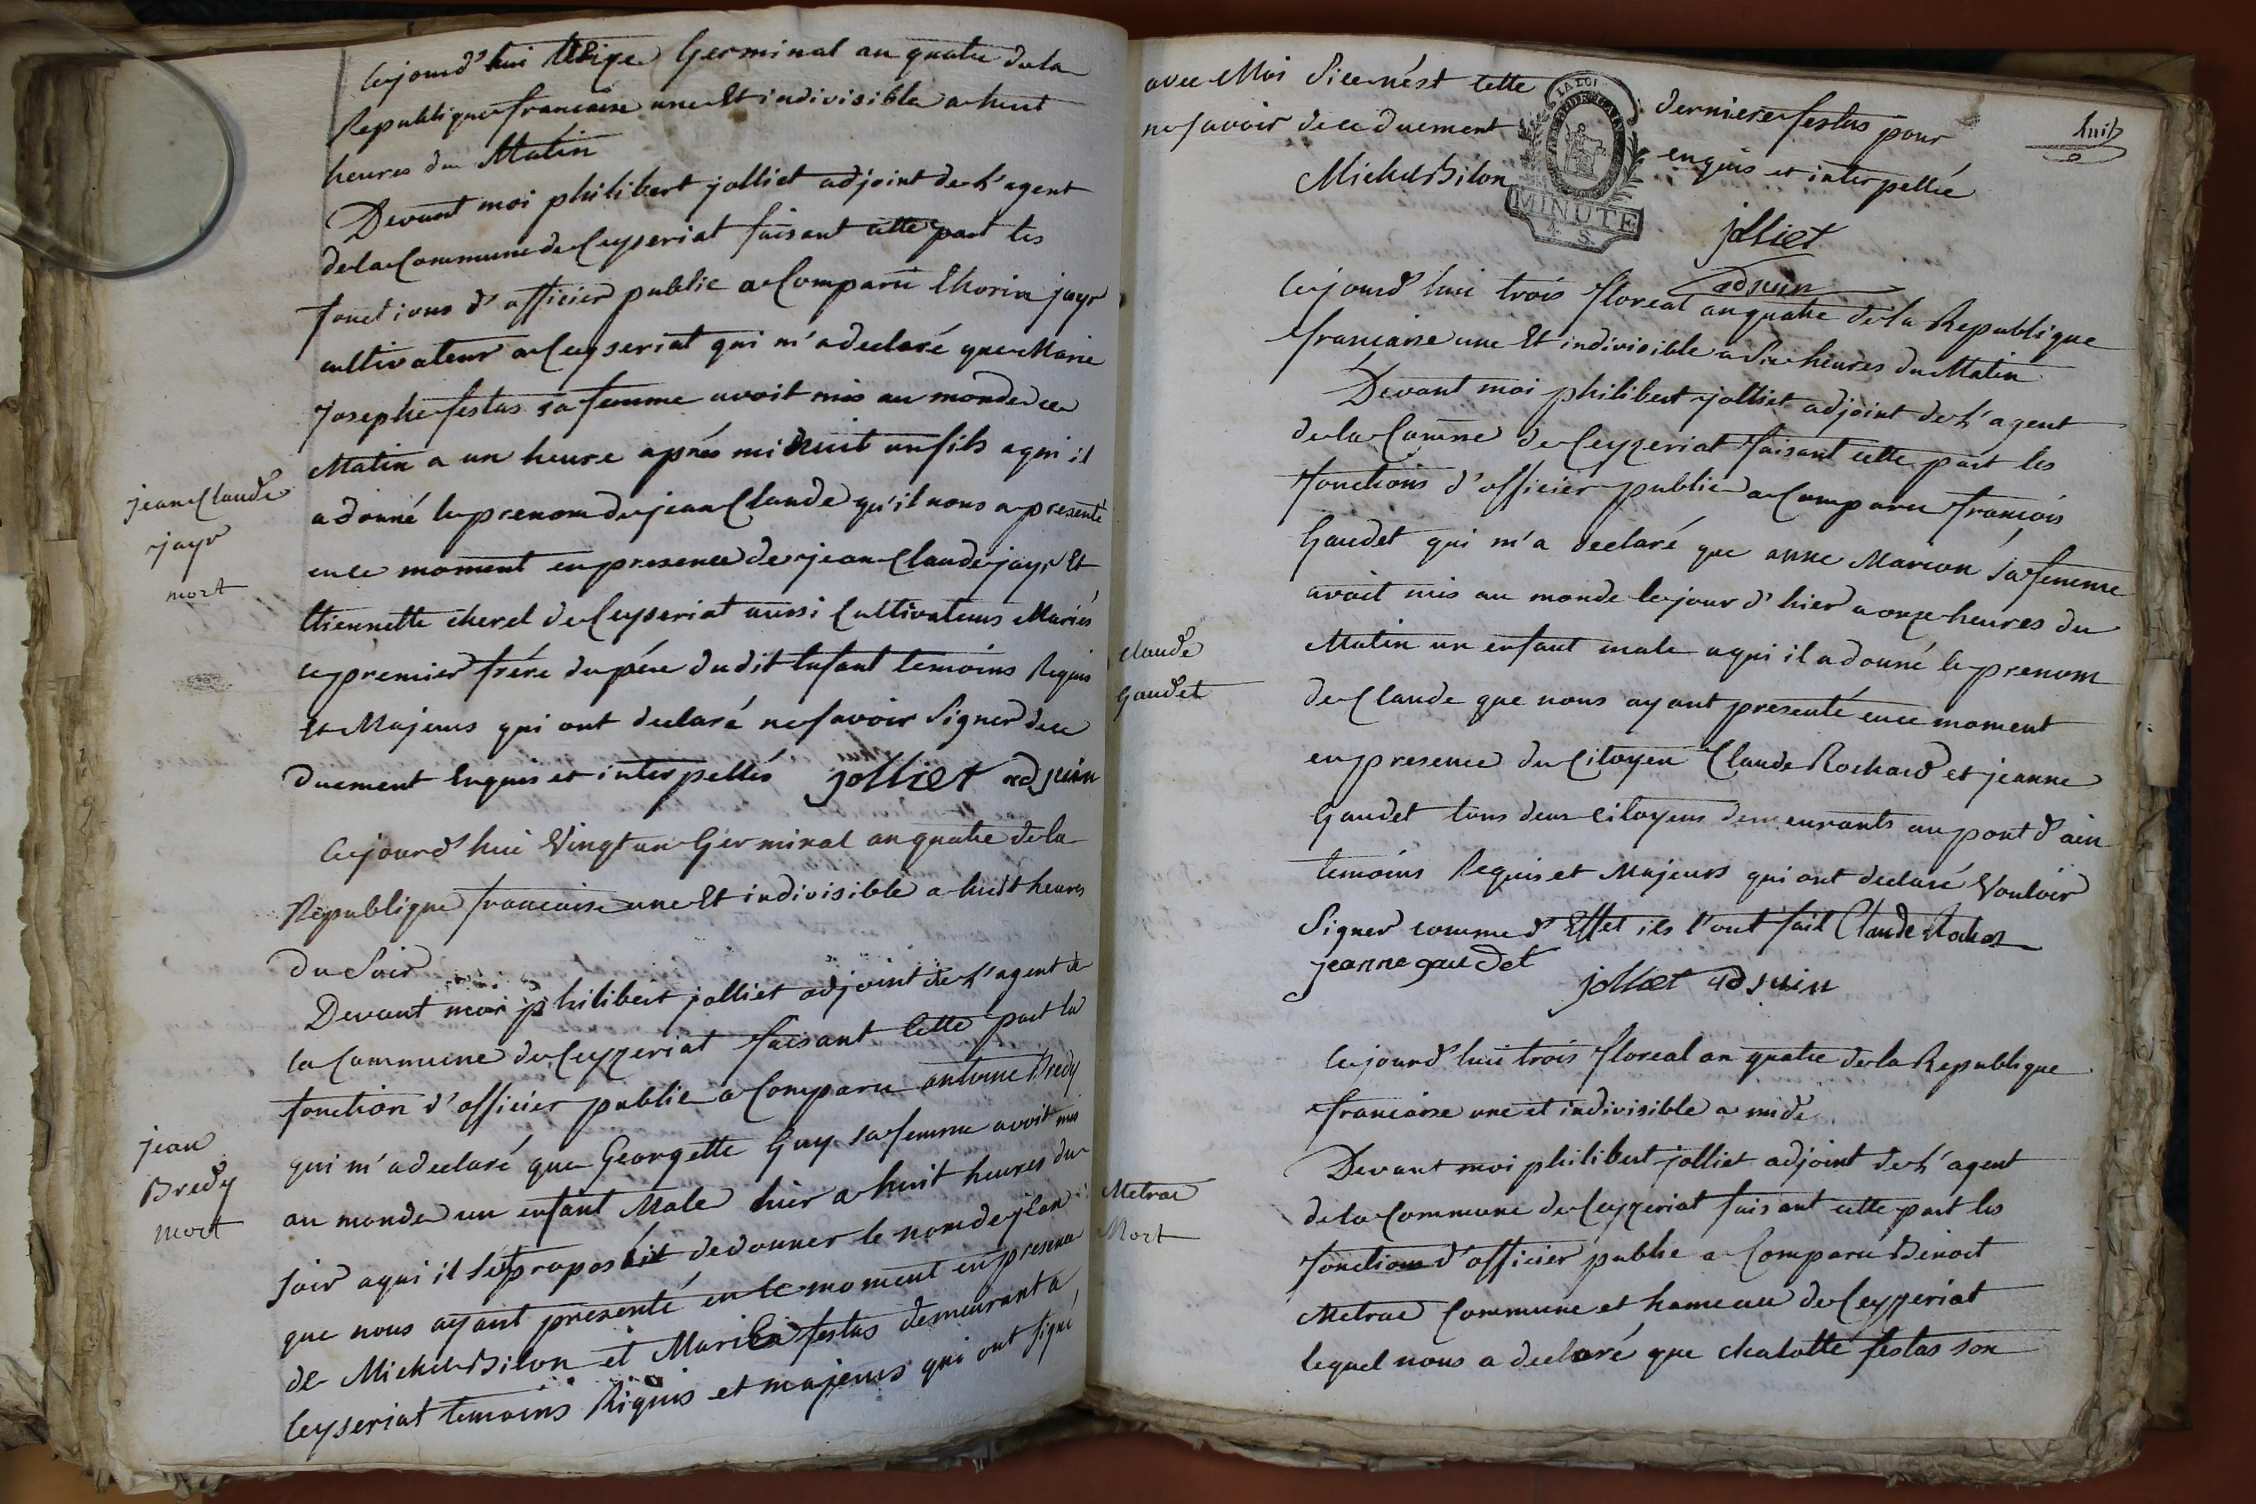 Cejourd'hui treize Germinal an quatre dela
Republique francaise une Et indivisible a huit
heures du Matin
Devant moi philibert jolliet adjoint de L'agent
dela Commune de Ceyseriat faisant cette part les
fonctions d'officier public a Comparu jayr
cultivateur a Ceyseriat qui m'a declaré que Marie
Josephe festas sa femme avoit mis au monde ce
Matin a un heure aprés minuit un fils a qui il
a donné le prenom de jean Claude qu'il nous a presenté
en ce moment en presence de jean Claude jayr Et
Etiennette cherel de Ceyseriat aussi Cultivateurs Mariés
le premier frére du pére dudit Enfant temoins Requis
Et Majeurs qui ont declaré ne savoir Signer de ce
duement Enquis et interpellés jolliet adjuin
jean Claude
jayr
mort
Cejourd'hui Vingt un Germinal an quatre de la
Republique francaise une Et indivisible a huit heures
du Soir
Devant moi philibert jolliet adjoint de L'agent de
la Commune de Ceyzeriat faisant Cette part la
fonction d'officier public a Comparu antoine Bredy
qui m'a declaré que Georgette Guy sa femme avoit mis
au monde un enfant Male hier a huit heures du
soir a qui il se proposoit de donner le nom de jean
que nous ayant presenté en ce moment en presence
de Michel Bilon et festas demeurant a
Ceyseriat temoins Requis et majeurs qui ont signé
jean
Bredy
mort
huit
avec Moi Si ce nést cette derniere festas pour
ne savoir de ce duement enquis et interpellée
LA LOI
MINUTE
4 S.
Michel Bilon
jolliet
adjuin
Cejourd'hui trois floreal an quatre de la Republique
francaise une Et indivisible a Six heures du Matin
Devant moi philibert jolliet adjoint de L'agent
de la Comne de Ceyzeriat faisant cette part les
fonctions d'officier public a Comparu francois
Gaudet qui m'a declaré que anne Marion sa femme
avoit mis au monde le jour d'hier a onze heures du
Matin un enfant male a qui il a donné le prenom
de Claude que nous ayant presenté en ce moment
en presence du Citoyen Claude Rochard et jeanne
Gaudet tous deux citoyens demeurants au pont d'ain
temoins Requis et Majeurs qui ont declaré Vouloir
Signer comme d'Effet ils l'ont fait Claude
jeanne gaudet
jolliet adjuin
claude
Gaudet
Cejourd'hui trois floreal an quatre de la Republique
francaise une et indivisible a midi
Devant moi philibert jolliet adjoint de L'agent
de la Commune de Ceyzeriat faisant cette part les
fonctions d'officier public a Comparu Benoit
Metrae Commune et hameau de Ceyzeriat
lequel nous a declaré que chalotte festas son
Metrae
Mort